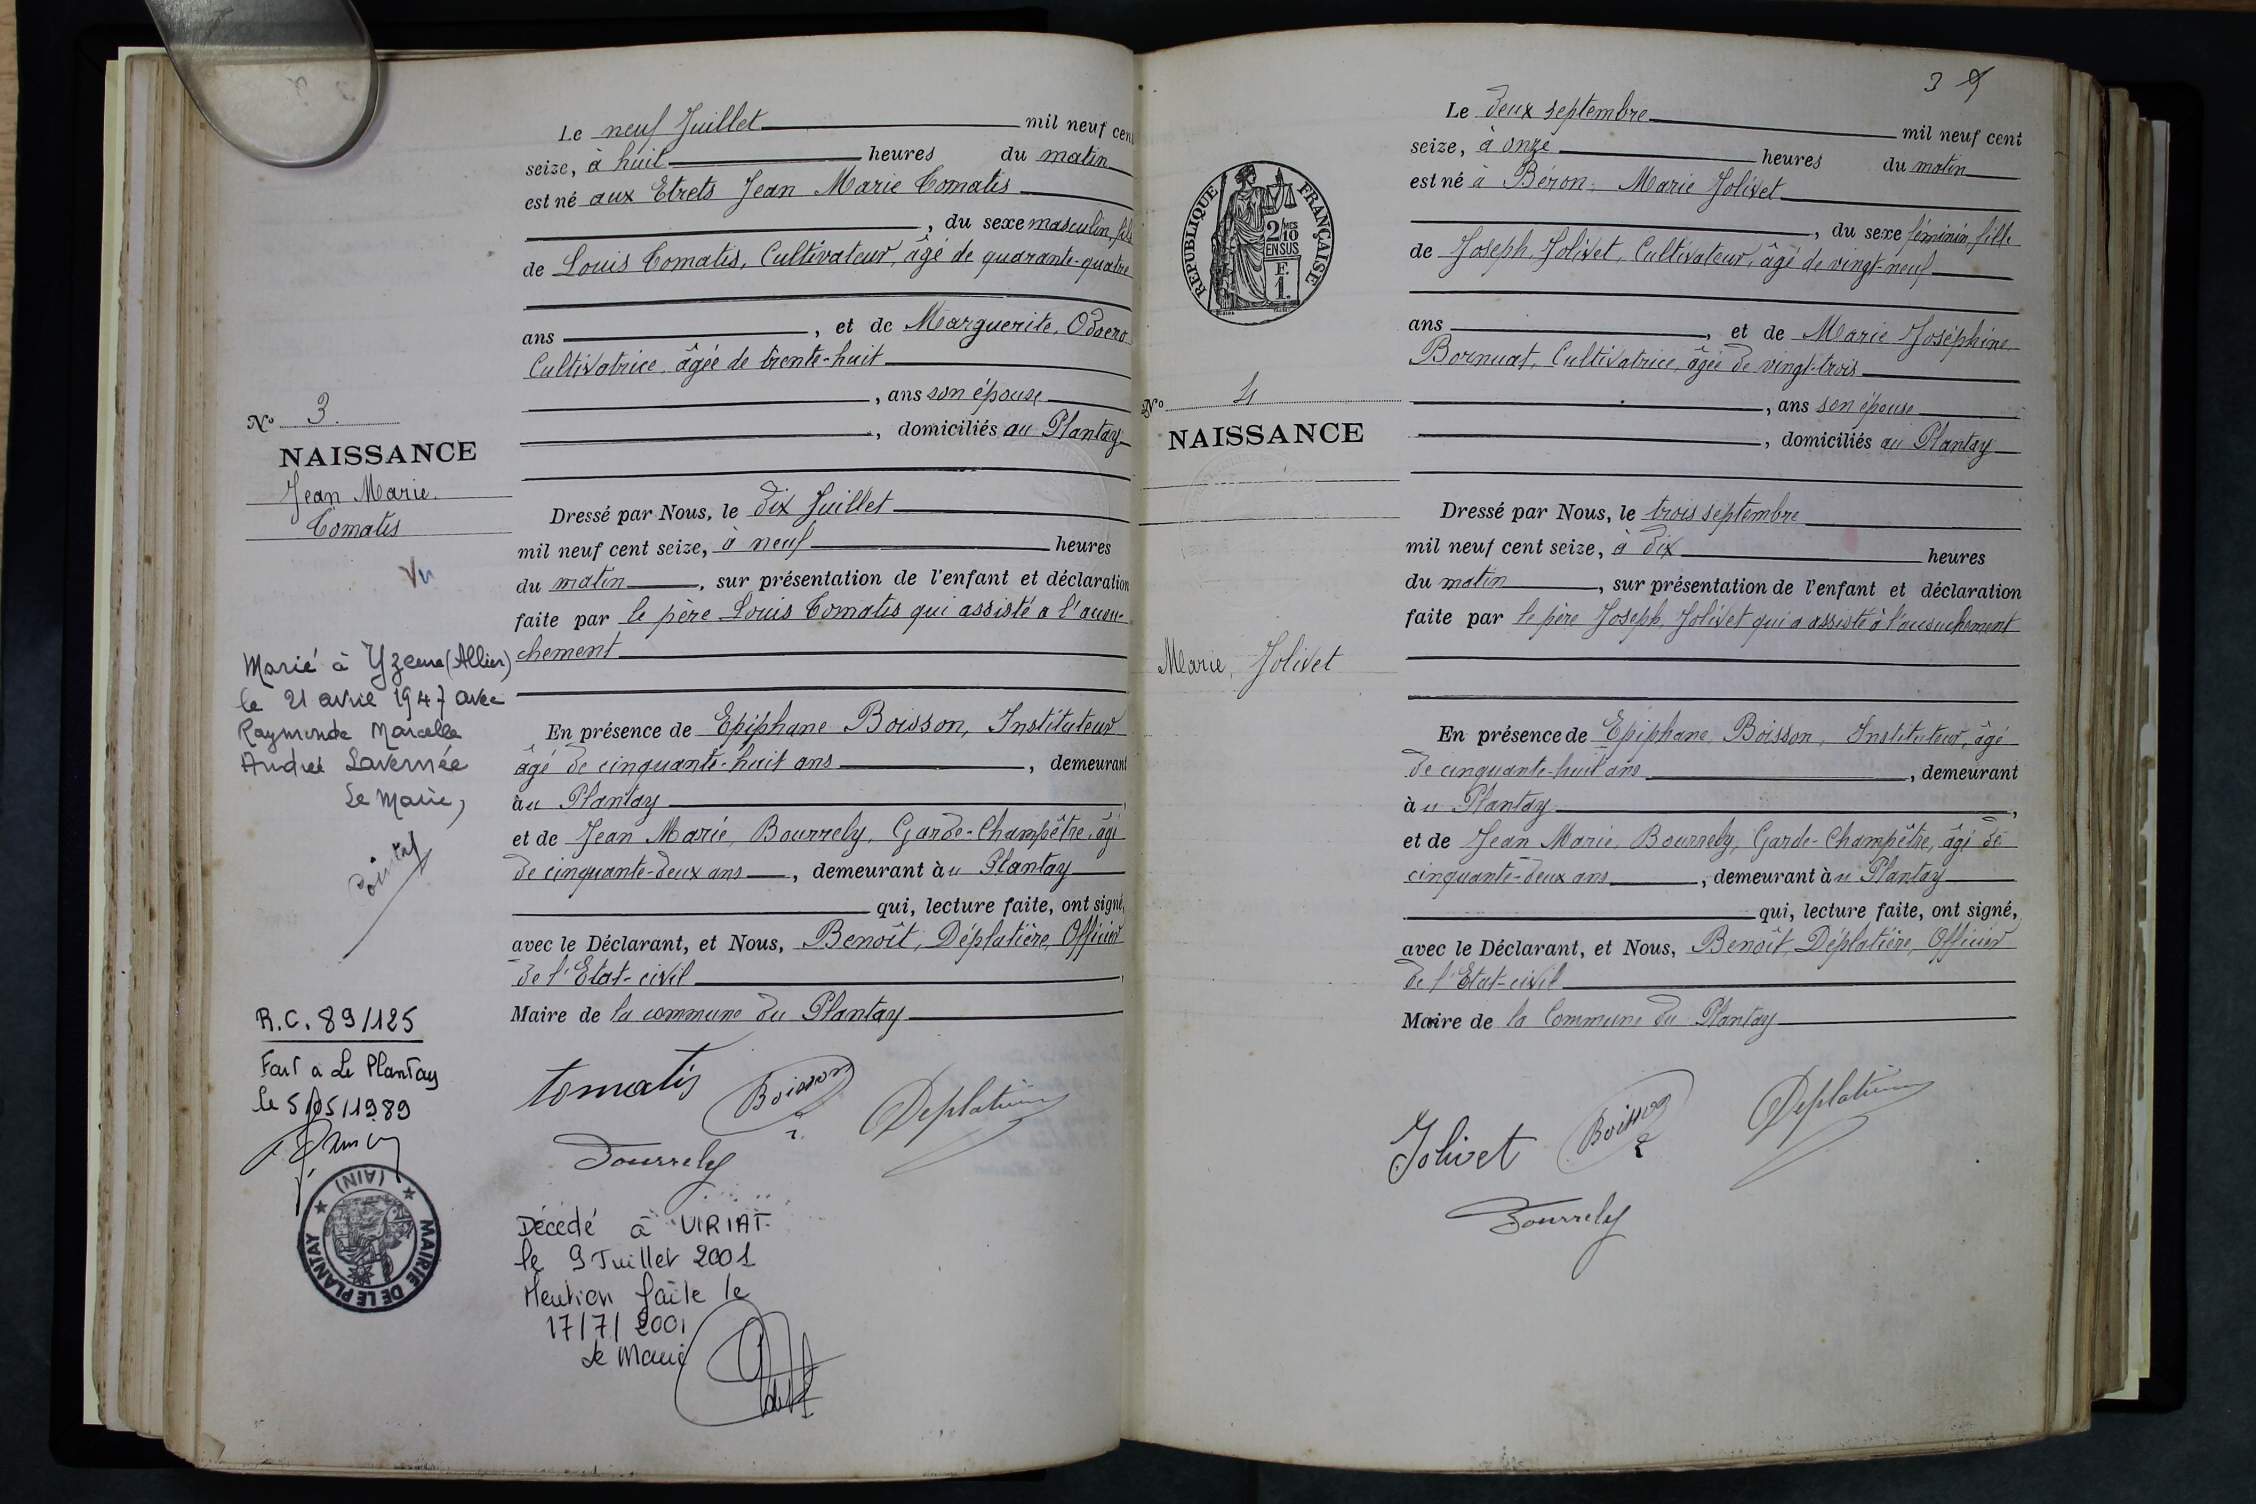 Le neuf Juillet mil neuf cent
seize, à huit heures du matin
est né aux Etrets Jean Marie Tomatis
, du sexe masculin, fils
de Louis Tomatis, Cultivateur, âgé de quarante-quatre
ans, et de Marguerite, Odoero
Cultivatrice, âgée de trente-huit
, ans son épouse
, domiciliés au Plantay
Nº 3.
NAISSANCE
Jean Marie.
Tomatis
Vu
Dressé par Nous, le dix Juillet
mil neuf cent seize, à neuf heures
du matin, sur présentation de l'enfant et déclaration
faite par le père Louis Tomatis qui assisté a l'accou-
chement
En présence de Epiphane Boisson, Instituteur
âgé de cinquante-huit ans, demeurant
àu Plantay,
et de Jean Marie, Bourrely, Garde-Champêtre, âgé
de cinquante-deux ans, demeurant àu Plantay
qui, lecture faite, ont signé,
avec le Déclarant, et Nous, Benoît, Déplatière, Officier
de l'Etat-civil,
Maire de la commune du Plantay
tomatis Boisson Déplatière
Bourrely
Marié à Yzeure (Allier)
le 21 avril 1947 avec
Raymonde Marcelle
Andrée Lavernée
Le Maire,
R.C. 89/125
Fait a Le Plantay
le 5/05/1989
MAIRIE DE LE PLANTAY
(AIN)
Décédé à VIRIAT
le 9 Juillet 2001
Mention faite le
17/7/2001
Le Maire
3 9
Le deux septembre mil neuf cent
seize, à onze heures du matin
est né à Béron, Marie Jolivet
, du sexe féminin, fille
de Joseph, Jolivet, Cultivateur, âgé de vingt-neuf
ans, et de Marie Joséphine
Bornuat, Cultivatrice, âgée de vingt-trois
, ans son épouse
, domiciliés au Plantay
RÉPUBLIQUE FRANÇAISE
2/10 MES
EN SUS
F.
1.
Nº 4
NAISSANCE
Marie, Jolivet
Dressé par Nous, le trois septembre
mil neuf cent seize, à dix heures
du matin, sur présentation de l'enfant et déclaration
faite par le père Joseph, Jolivet qui a assisté à l'accouchement
En présence de Epiphane, Boisson, Instituteur, âgé
de cinquante-huit ans, demeurant
àu Plantay,
et de Jean Marie, Bourrely, Garde-Champêtre, âgé de
cinquante-deux ans, demeurant àu Plantay
qui, lecture faite, ont signé,
avec le Déclarant, et Nous, Benoît, Déplatière, Officier
de l'Etat-civil
Maire de la Commune du Plantay
Jolivet Boisson Déplatière
Bourrely